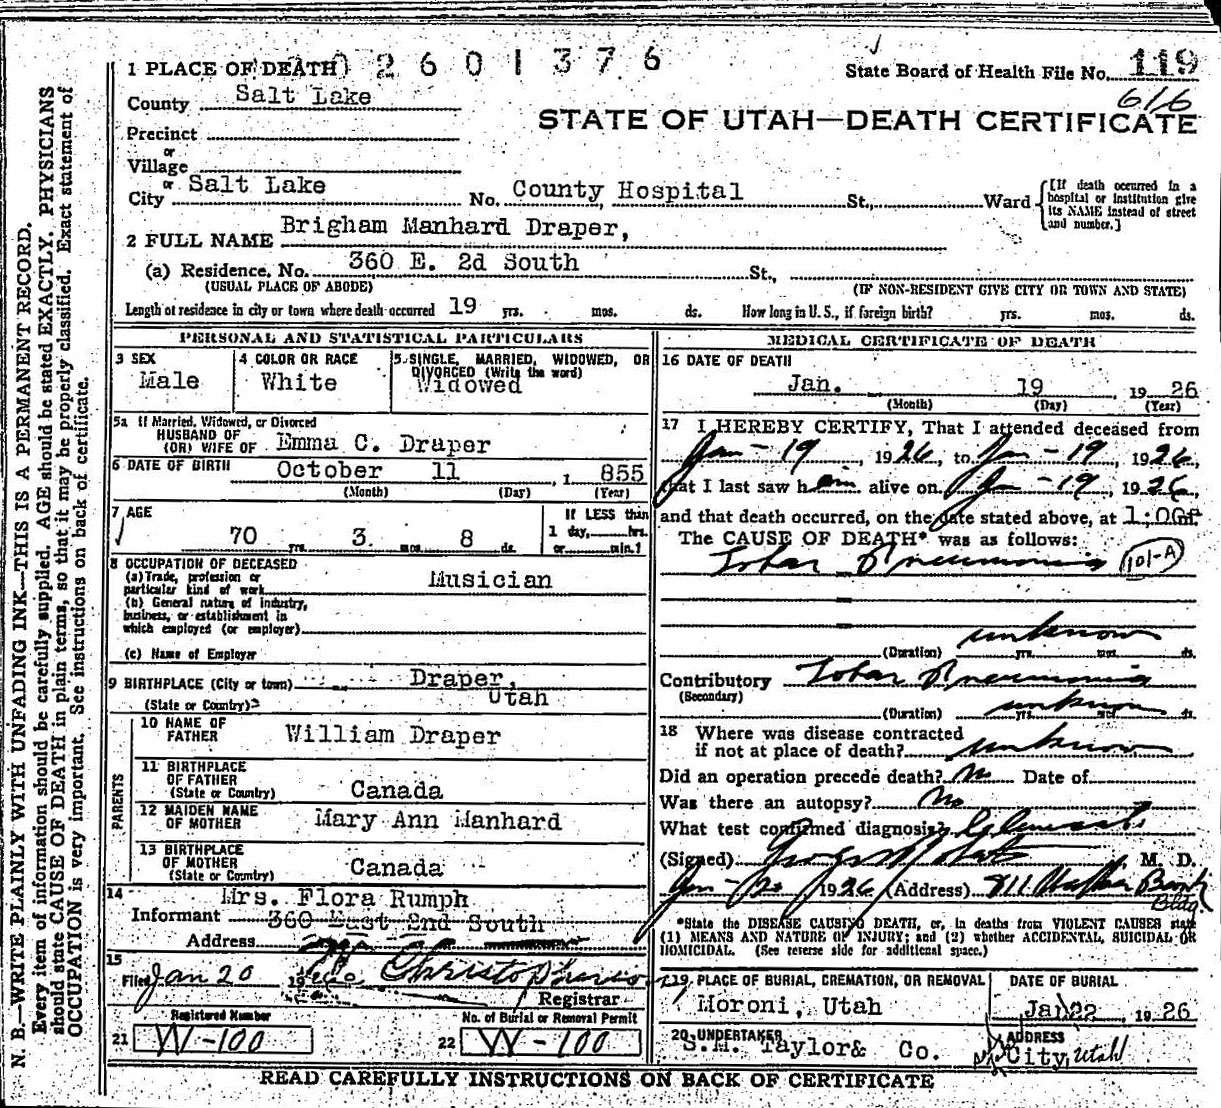 2601376
1 PLACE OF DEATH
State Board of Health File No. 119
616
County Salt Lake
STATE OF UTAH—DEATH CERTIFICATE
Precinct
or
Village
or
City Salt Lake No. County Hospital St., Ward
[If death occurred in a hospital or institution give its NAME instead of street and number.]
2 FULL NAME Brigham Manhard Draper,
(a) Residence, No. 360 E. 2d South St.,
(USUAL PLACE OF ABODE) (IF NON-RESIDENT GIVE CITY OR TOWN AND STATE)
Length of residence in city or town where death occurred 19 yrs. mos. ds. How long in U. S., if foreign birth? yrs. mos. ds.
PERSONAL AND STATISTICAL PARTICULARS
3 SEX Male
4 COLOR OR RACE White
5 SINGLE, MARRIED, WIDOWED, OR DIVORCED (Write the word)
Widowed
5a If Married, Widowed, or Divorced
HUSBAND OF
(OR) WIFE OF Emma C. Draper
6 DATE OF BIRTH October 11, 1 855
(Month) (Day) (Year)
7 AGE 70 yrs. 3 mos. 8 ds.
If LESS than
1 day, hrs.
or min.?
8 OCCUPATION OF DECEASED
(a) Trade, profession or
particular kind of work Musician
(b) General nature of industry,
business, or establishment in
which employed (or employer)
(c) Name of Employer
9 BIRTHPLACE (City or town) Draper,
(State or Country) Utah
PARENTS
10 NAME OF
FATHER William Draper
11 BIRTHPLACE
OF FATHER
(State or Country) Canada
12 MAIDEN NAME
OF MOTHER Mary Ann Manhard
13 BIRTHPLACE
OF MOTHER
(State or Country) Canada
14 Mrs. Flora Rumph
Informant 360 East 2nd South
Address
15
Filed Jan 20 19
Registrar
Registered Number
21 W-100
No. of Burial or Removal Permit
22 W-100
MEDICAL CERTIFICATE OF DEATH
16 DATE OF DEATH
Jan. 19 19 26
(Month) (Day) (Year)
17 I HEREBY CERTIFY, That I attended deceased from
Jan - 19, 1926, to Jan - 19, 1926,
that I last saw him alive on Jan - 19, 1926,
and that death occurred, on the date stated above, at 1:00P m.
The CAUSE OF DEATH* was as follows:
Lobar Pneumonia 101-A
unknown
(Duration) yrs. mos. ds.
Contributory Lobar Pneumonia
(Secondary)
(Duration) unknown yrs. mos. ds.
18 Where was disease contracted
if not at place of death? unknown
Did an operation precede death? No Date of
Was there an autopsy? No
What test confirmed diagnosis?
(Signed) M. D.
Jan - 20 1926 (Address) 811 Walker Bank
Bldg.
*State the DISEASE CAUSING DEATH, or, in deaths from VIOLENT CAUSES state
(1) MEANS AND NATURE OF INJURY; and (2) whether ACCIDENTAL, SUICIDAL OR
HOMICIDAL. (See reverse side for additional space.)
19 PLACE OF BURIAL, CREMATION, OR REMOVAL
Moroni, Utah
DATE OF BURIAL
Jan 22, 19 26
20 UNDERTAKER
S.M. Taylor & Co.
ADDRESS
City, Utah
READ CAREFULLY INSTRUCTIONS ON BACK OF CERTIFICATE
N. B.—WRITE PLAINLY WITH UNFADING INK—THIS IS A PERMANENT RECORD.
Every item of information should be carefully supplied. AGE should be stated EXACTLY. PHYSICIANS
should state CAUSE OF DEATH in plain terms, so that it may be properly classified. Exact statement of
OCCUPATION is very important. See instructions on back of certificate.